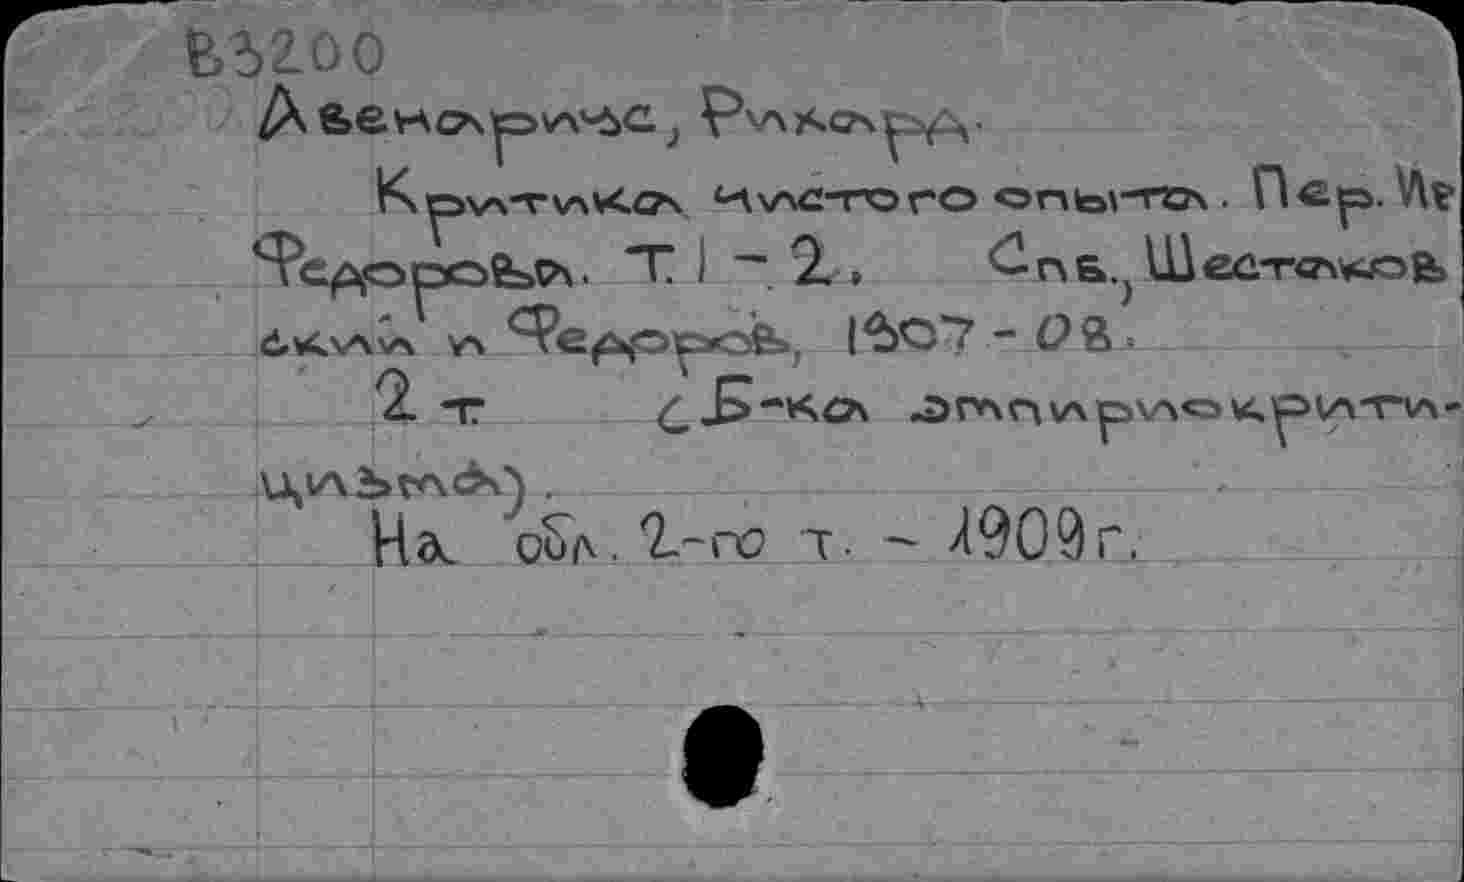 В3200
Авенариус, Рихард.
Критика чистого опыта. Пер. И.
Федорова. Т. 1 - 2. Спб., Шестаков
ский и Федоров, 1907 - 08.
2 т. (Б-ка эмпириокрити-
цизма).
На обл. 2-го т. - 1909 г.